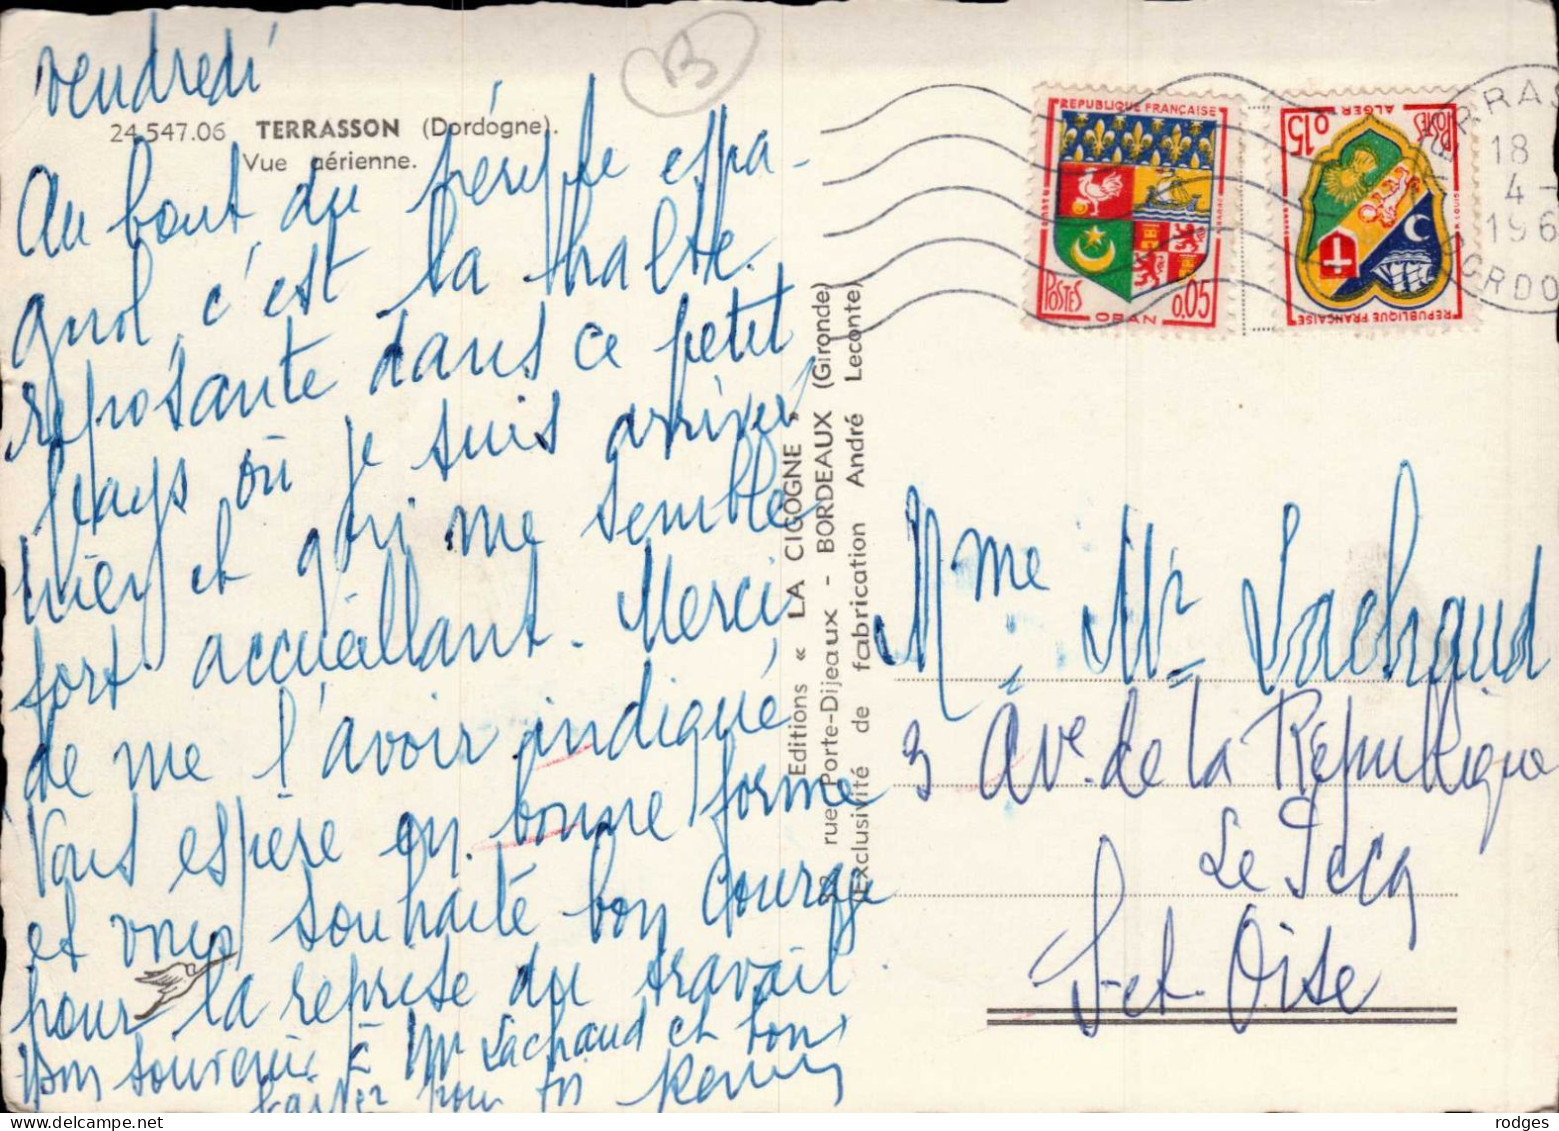 Vendredi
B
24.547.06 TERRASSON (Dordogne).
Vue aérienne.
Au bout du périple espa-
gnol, c'est la halte
reposante dans ce petit
pays où je suis arrivée
hier et qui me semble
fort accueillant. Merci
de me l'avoir indiqué
Vous espère en bonne forme
et vous souhaite bon courage
pour la reprise du travail
Bon souvenir à Mr Lachaud et bons
baisers pour toi
Editions « LA CIGOGNE »
rue Porte-Dijeaux - BORDEAUX (Gironde)
Exclusivité de fabrication André Leconte
REPUBLIQUE FRANÇAISE
POSTES 0,05
ORAN
REPUBLIQUE FRANÇAISE
POSTES 0,15
ALGER
18
4-
196
Mme Mr Lachaud
3 Ave. de la République
Le Pecq
S-et-Oise
rodges